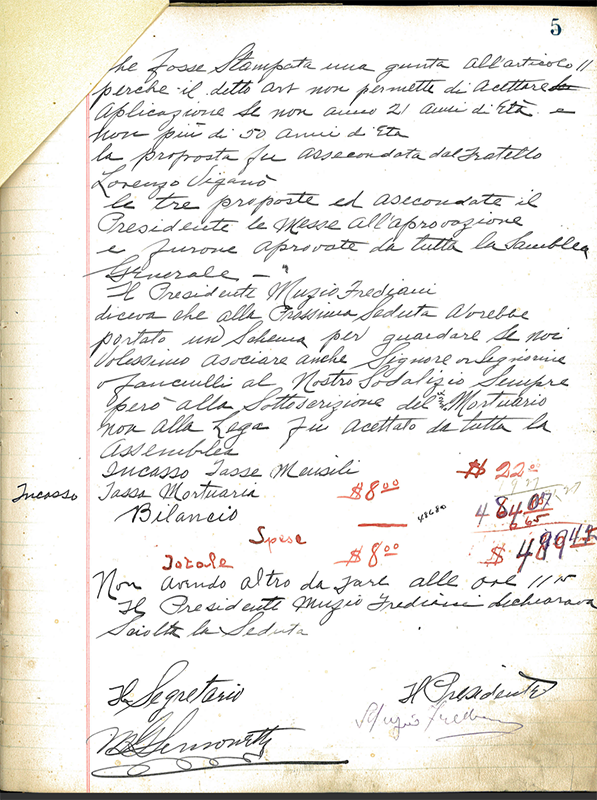 5
che fosse Stampata una giunta all'articolo 11
perche il detto art non permette di Acettare
aplicazione Se non anno 21 anni di Età e
non più di 50 anni d'Età
la proposta fu assecondata dal Fratello
Lorenzo Viganò
le tre proposte ed asecondate il
Presidente le Messe all'aprovazione
e furone aprovate da tutta la Samblea
Generale —
Il Presidente Muzio Frediani
diceva che alla Prossima Seduta Avrebbe
portato un Schema per guardare se noi
Volessimo asociare anche Signore or Signorine
o fanciulli al Nostro Sodalizio Sempre
però alla Sottoscrizione del Mortuario
non alla Lega fu Acettato da tutta la
Assemblea
Incasso Tasse Mensili $ 22
Incasso Tassa Mortuaria $8.00
Bilancio
Spese 665
Totale $8.00 $ 499
Non avendo altro da fare alle ore 11
Il Presidente Muzio Frediani dichiarava
Sciolta la Seduta
Il Segretario Il Presidente
Muzio Frediani